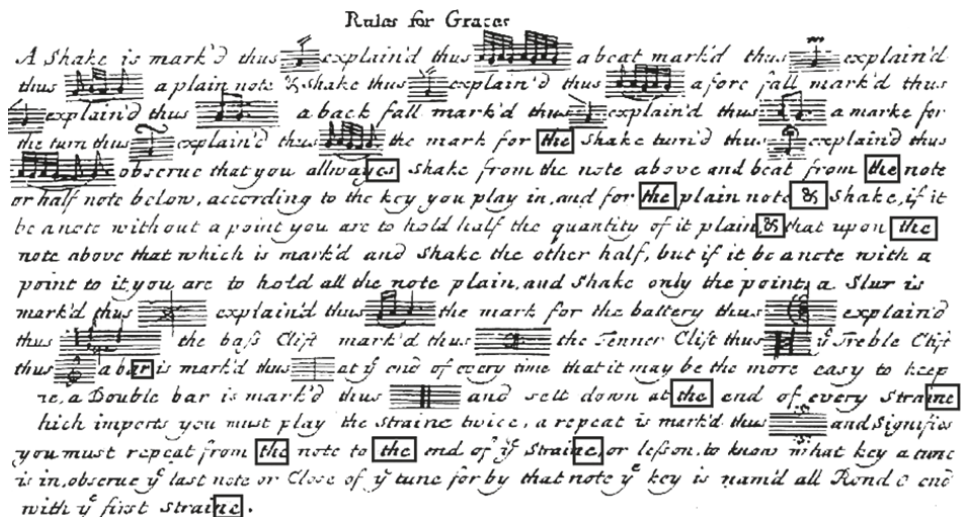 Rules for Graces
A Shake is mark'd thus explain'd thus a beat mark'd thus explain'd
thus a plain note & Shake thus explain'd thus a fore fall mark'd thus
explain'd thus a back fall mark'd thus explain'd thus a marke for
the turn thus explain'd thus the mark for the Shake turn'd thus explain'd thus
observe that you allwayes Shake from the note above and beat from the note
or half note below, according to the key you play in, and for the plain note & Shake, if it
be a note without a point you are to hold half the quantity of it plain & that upon the
note above that which is mark'd and Shake the other half, but if it be a note with a
point to it you are to hold all the note plain, and Shake only the point, a Slur is
mark'd thus explain'd thus the mark for the battery thus explain'd
thus the bass Clift mark'd thus the Tenner Clift thus ye Treble Clift
thus a bar is mark'd thus at ye end of every time that it may be the more easy to keep
re, a Double bar is mark'd thus and sett down at the end of every Straine
hich imports you must play the Straine twice, a repeat is mark'd thus and Signifies
you must repeat from the note to the end of ye Straine, or lesson, to know what key a tune
is in, observe ye last note or Close of ye tune for by that note ye key is nam'd all Rond o end
with ye first Straine.